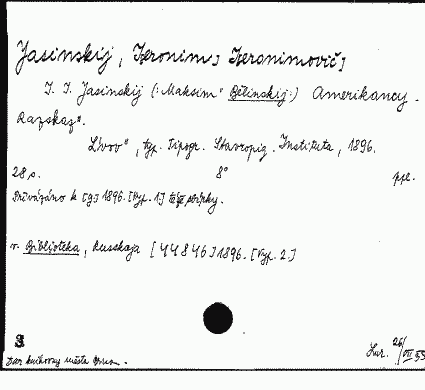 Jasinskij, I[eronim] I[eronimovič]
I. I. Jasinskij (:Maksim" Bělinskij:) Amerikancy.
Razskaz".
L'vov", typ. Tipogr. Stavropig. Instituta, 1896.
28 s. 8° ppl.
Přivázáno k 1896. [Vyp. 1] téže
v. Biblioteka, Russkaja [44846] 1896. [Vyp. 2.]
3
Dar knihovny města Brna. 26/VII 55